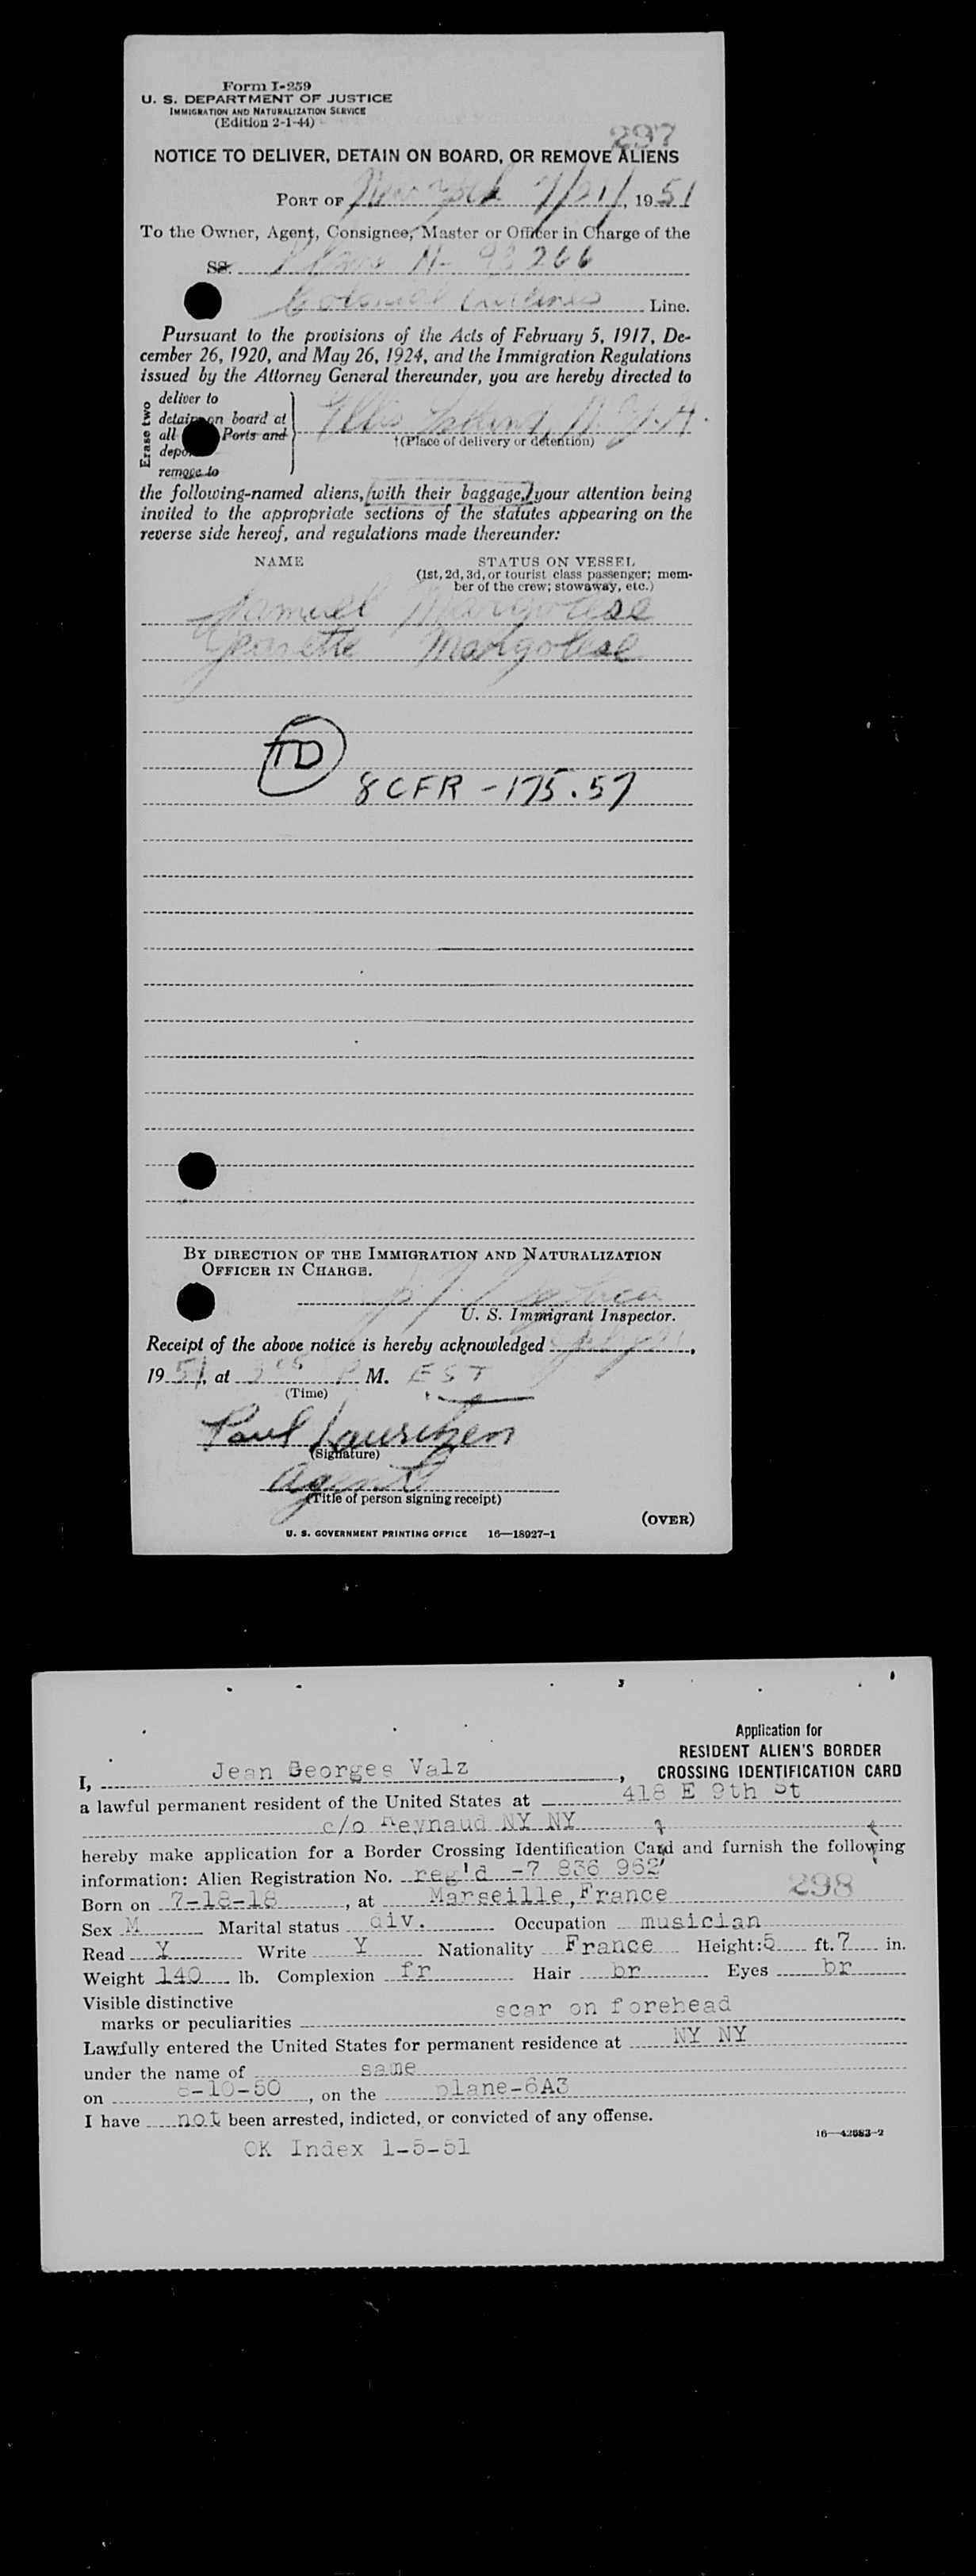 Form I-259
U. S. DEPARTMENT OF JUSTICE
IMMIGRATION AND NATURALIZATION SERVICE
(Edition 2-1-44)
297
NOTICE TO DELIVER, DETAIN ON BOARD, OR REMOVE ALIENS
PORT OF New York 7/21/, 1951
To the Owner, Agent, Consignee, Master or Officer in Charge of the
SS. Plane N- 93266
Colonial Airlines Line.
Pursuant to the provisions of the Acts of February 5, 1917, De-
cember 26, 1920, and May 26, 1924, and the Immigration Regulations
issued by the Attorney General thereunder, you are hereby directed to
Erase two
deliver to
detain on board at
all Ports and
remove to
Ellis Island, N.Y.H.
†(Place of delivery or detention)
the following-named aliens, (with their baggage,) your attention being
invited to the appropriate sections of the statutes appearing on the
reverse side hereof, and regulations made thereunder:
NAME STATUS ON VESSEL
(1st, 2d, 3d, or tourist class passenger; mem-
ber of the crew; stowaway, etc.)
Samuel Margolese
Jeanette Margolese
TD
8 CFR - 175.57
BY DIRECTION OF THE IMMIGRATION AND NATURALIZATION
OFFICER IN CHARGE.
U. S. Immigrant Inspector.
Receipt of the above notice is hereby acknowledged
1951, at P M. EST
(Time)
Paul Lauritzen
(Signature)
Agent
(Title of person signing receipt)
(OVER)
U. S. GOVERNMENT PRINTING OFFICE 16—18927-1
Application for
RESIDENT ALIEN'S BORDER
CROSSING IDENTIFICATION CARD
I, Jean Georges Valz,
a lawful permanent resident of the United States at 418 E 9th St
c/o Reynaud NY NY
hereby make application for a Border Crossing Identification Card and furnish the following
information: Alien Registration No. reg'd -7 836 962
298
Born on 7-18-18, at Marseille, France
Sex M Marital status div. Occupation musician
Read Y Write Y Nationality France Height: 5 ft. 7 in.
Weight 140 lb. Complexion fr Hair br Eyes br
Visible distinctive
marks or peculiarities scar on forehead
Lawfully entered the United States for permanent residence at NY NY
under the name of same
on -10-50, on the plane-6A3
I have not been arrested, indicted, or convicted of any offense.
16—42683-2
OK Index 1-5-51